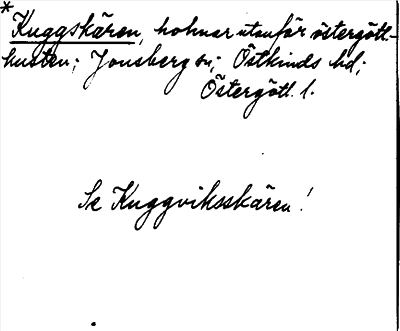 *Kuggskären, holmar utanför östergött-
kusten; Jonsberg sn; Östkinds hd;
Östergötl. l.
Se Kuggviksskären!